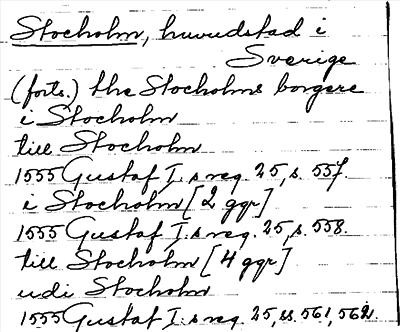 Stocholm, huvudstad i
Sverige
(forts.) the Stocholms borgere
i Stocholm
till Stocholm
1555 Gustaf I.s reg. 25, s. 557.
i Stocholm [2 ggr]
1555 Gustaf I.s reg. 25, s. 558.
till Stocholm [4 ggr]
udi Stocholm
1555 Gustaf I.s reg. 25, ss. 561, 562.